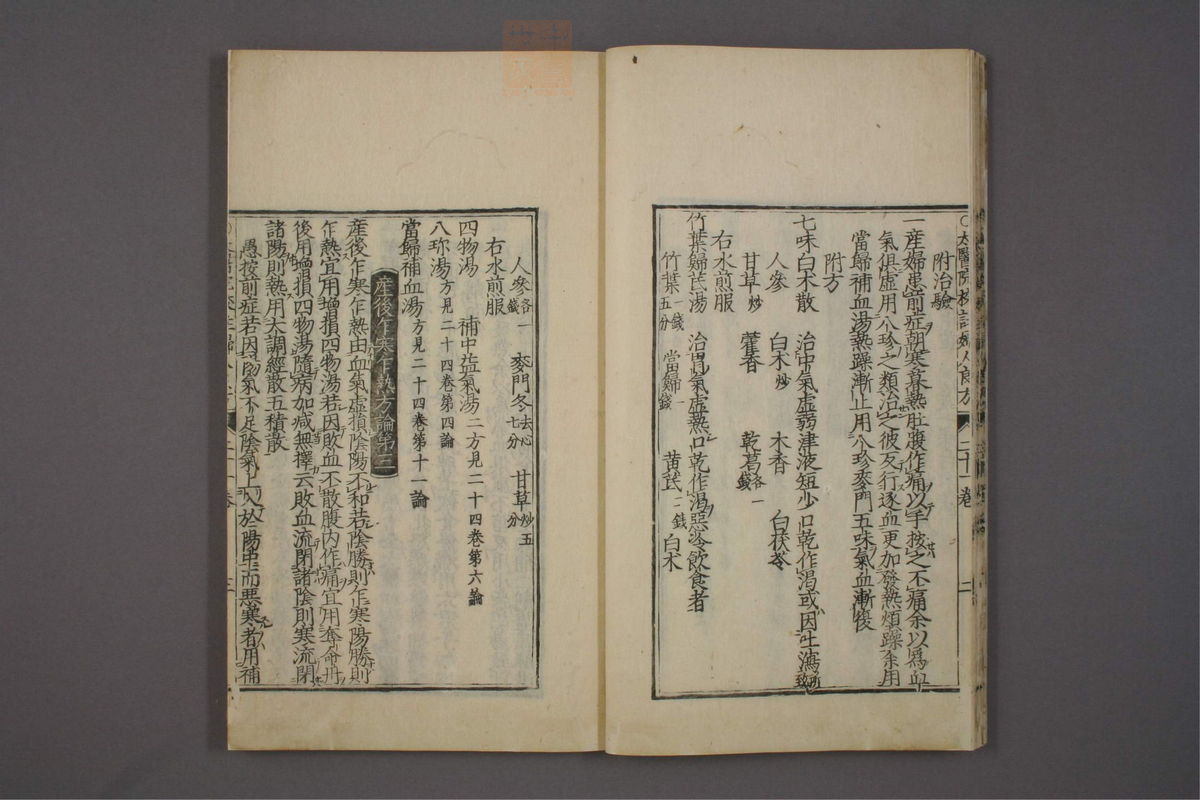 ○太醫院校註婦人良方 二十一卷 二
附治驗
一產婦患前症朝寒暮熱肚腹作痛以手按之不痛余以爲血
氣俱虛用八珍之類治之彼反行逐血更加發熱煩躁余用
當歸補血湯熱躁漸止用八珍麥門五味氣血漸復
附方
七味白朮散 治中氣虛弱津液短少口乾作渴或因吐瀉所致
人參 白朮炒 木香 白茯苓
甘草炒 藿香 乾葛各一錢
右水煎服
竹葉歸芪湯 治胃氣虛熱口乾作渴惡冷飲食者
竹葉一錢五分 當歸一錢 黃芪二錢 白朮
人參各一錢 麥門冬去心七分 甘草炒五分
右水煎服
四物湯 補中益氣湯二方見二十四卷第六論
八珎湯方見二十四卷第四論
當歸補血湯方見二十四卷第十一論
産後乍寒乍熱方論第三
産後乍寒乍熱由血氣虛損陰陽不和若陰勝則乍寒陽勝則
乍熱宜用增損四物湯若因敗血不散腹内作痛宜用奪命丹
後用增損四物湯隨病加减無擇云敗血流閉諸陰則寒流閉
諸陽則熱用大調經散五積散
愚按前症若因陽氣不足陰氣上入於陽中而惡寒者用補